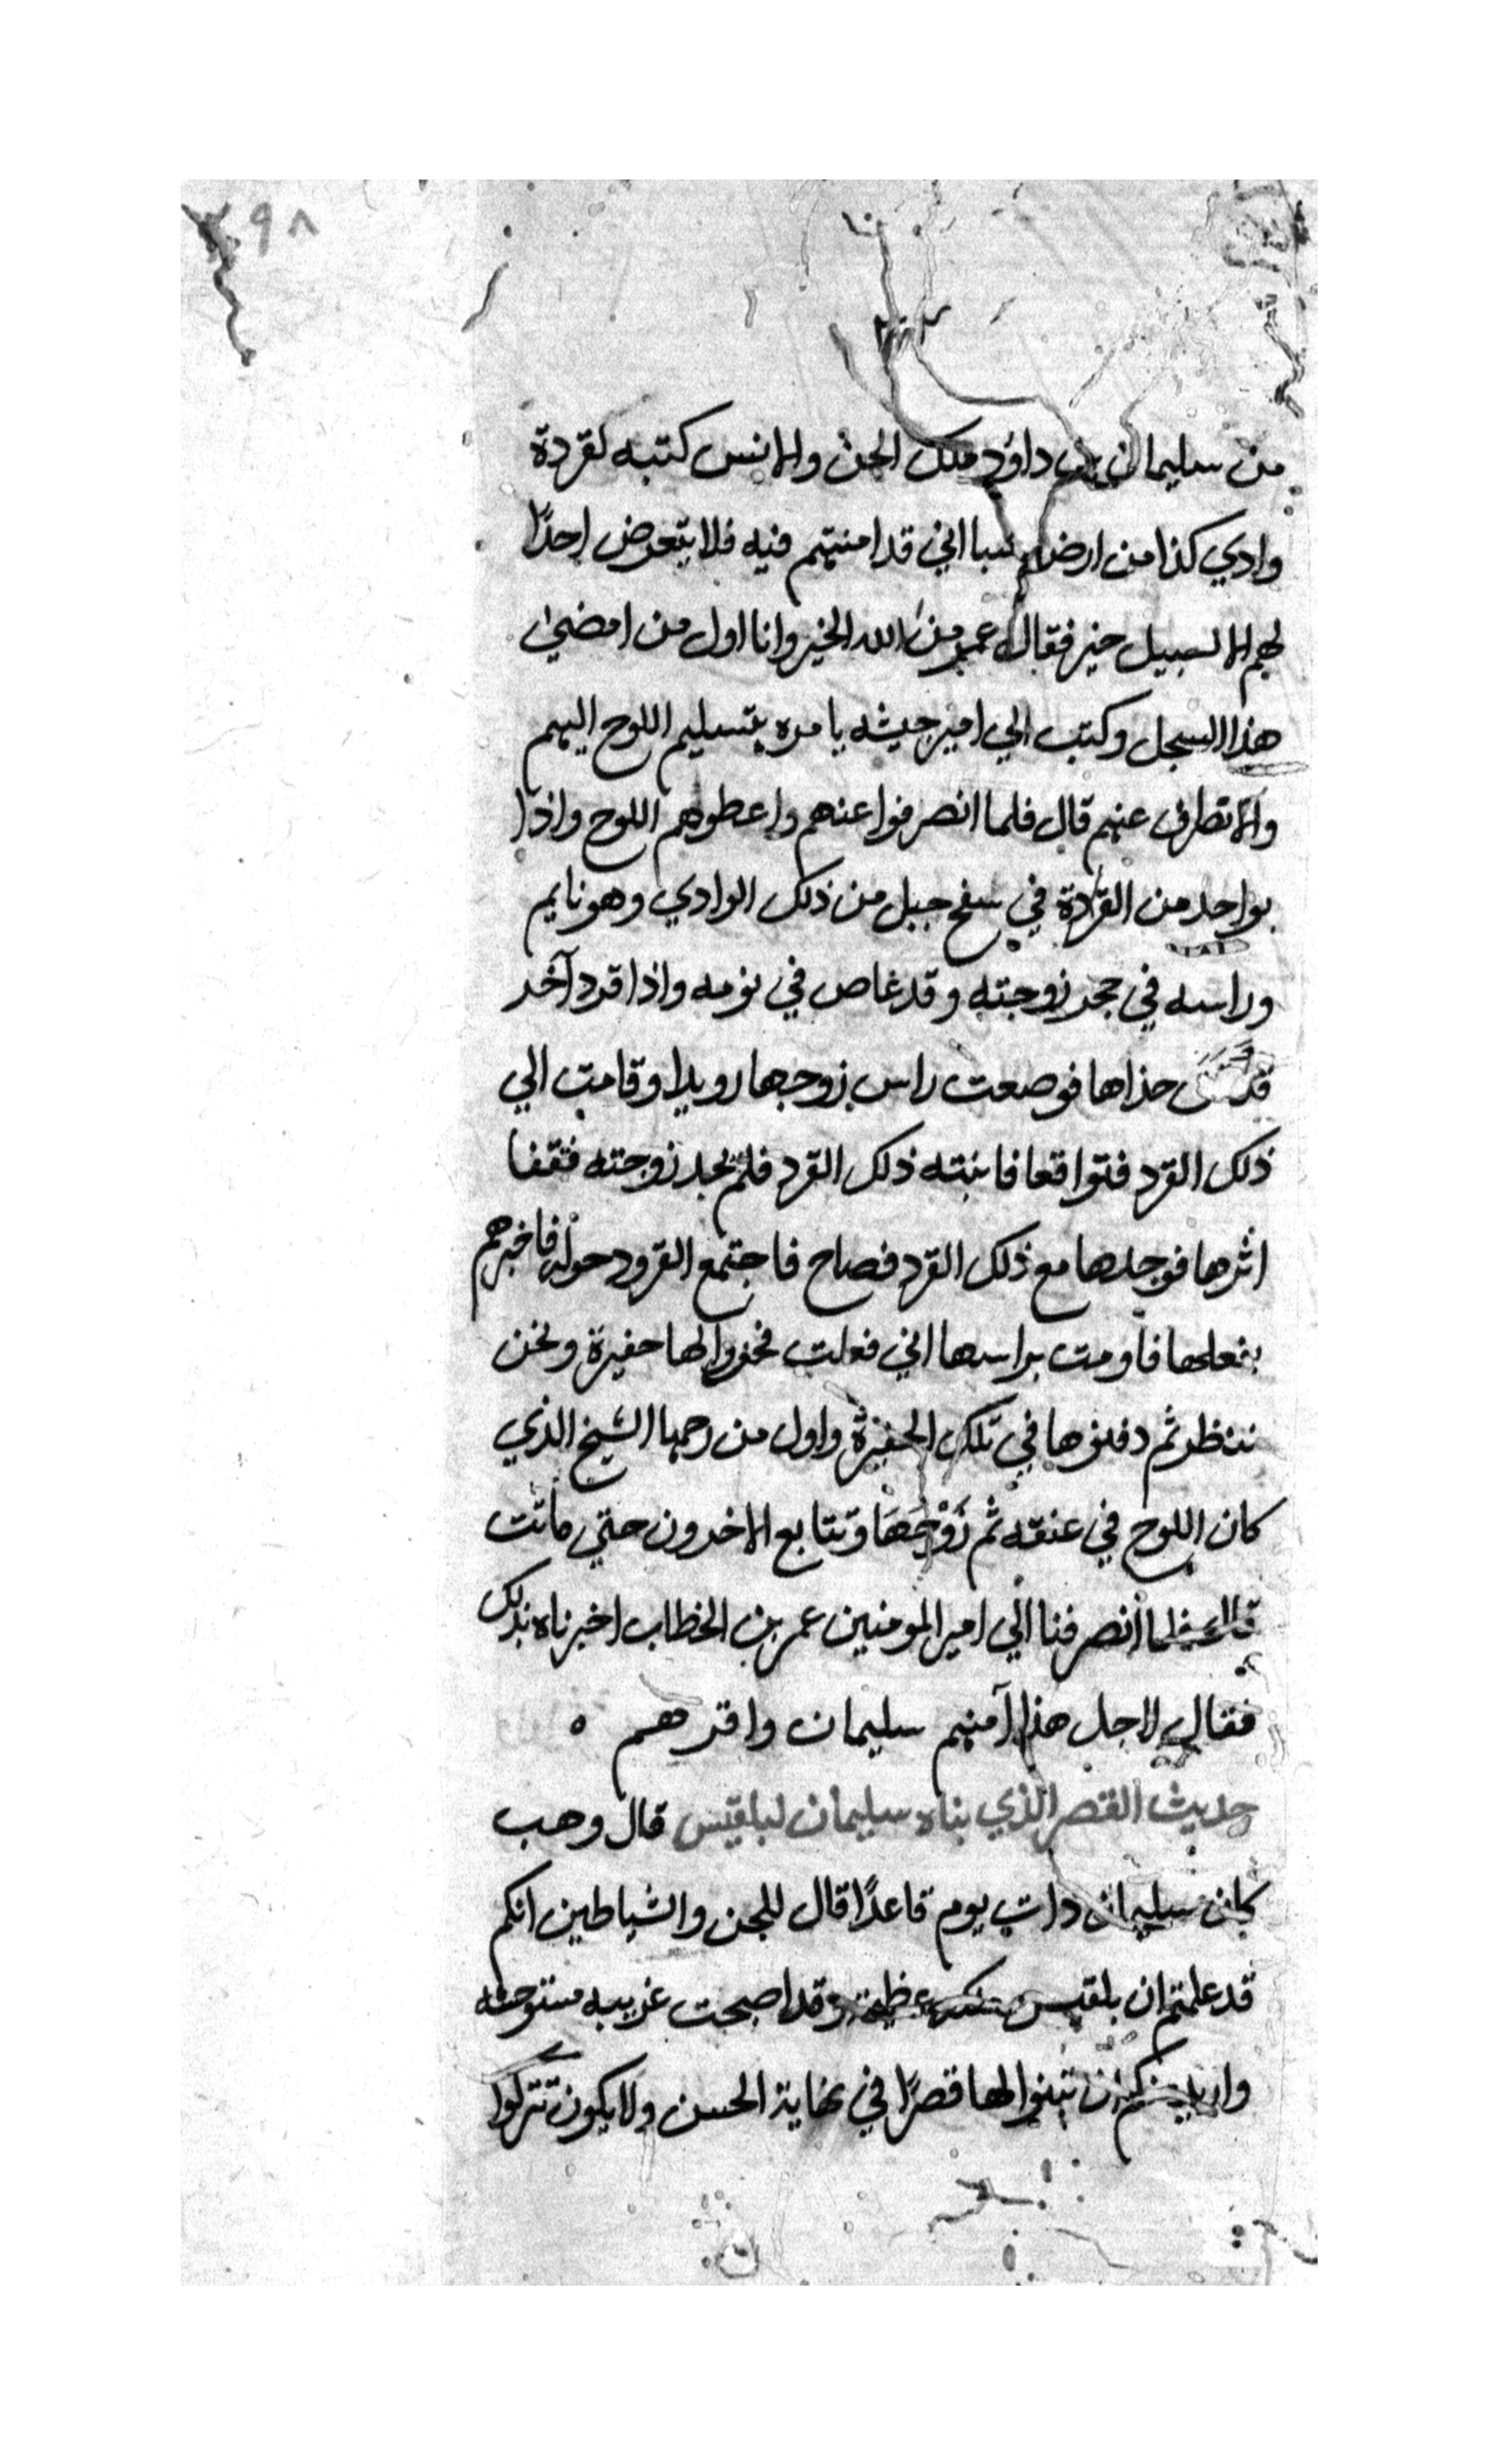 ٢٩٨
من سليمان بن داوُد ملك الجن والانس كتبه لقردة
وادي كذا من ارض سبا اني قد امنتهم فيه فلا يتعرض احدًا
لهم الا لسبيل خير فقال عمر من الله الخير وانا اول من امضي
هذا السجل وكتب الي امير جيشه يامره بتسليم اللوح اليهم
والا تطرق عنهم قال فلما انصرفوا عنهم واعطوهم اللوح واذا
بواحد من القردة في سفح جبل من ذلك الوادي وهو نايم
وراسه في حجر زوجته وقد غاص في نومه واذا قرد آخر
حذاها فوضعت راس زوجها رويدا وقامت الي
ذلك القرد فتواقعا فانبته ذلك القرد فلم يجد زوجته فقفا
اثرها فوجدها مع ذلك القرد فصاح فاجتمع القرود حوله فاخبرهم
بفعلها فاومت براسها اني فعلت فحفروا لها حفيرة ونحن
ننظر ثم دفنوها في تلك الحفيرة واول من رجمها الشيخ الذي
كان اللوح في عنقه ثم زَوْجُهَا وتتابع الاخرون حتي ماتت
قال فلما انصرفنا الي امير المومنين عمر بن الخطاب اخبرناه بذلك
فقال لاجل هذا آمنهم سليمان واقرهم ه
حديث القصر الذي بناه سليمان لبلقيس قال وهب
كان سليمان دات يوم قاعدًا قال للجن والشياطين انكم
قد علمتم ان بلقيس ملكه عظيمة وقد اصبحت غريبه مستوحشه
واريد منكم ان تبنوا لها قصرًا في نهاية الحسن ولا يكون تتركوا